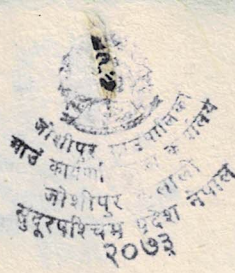 जोशीपुर गाउँपालिका
गाउँ कार्यपालिकाको कार्यालय
जोशीपुर कैलाली
सुदूरपश्चिम प्रदेश नेपाल
२०७३